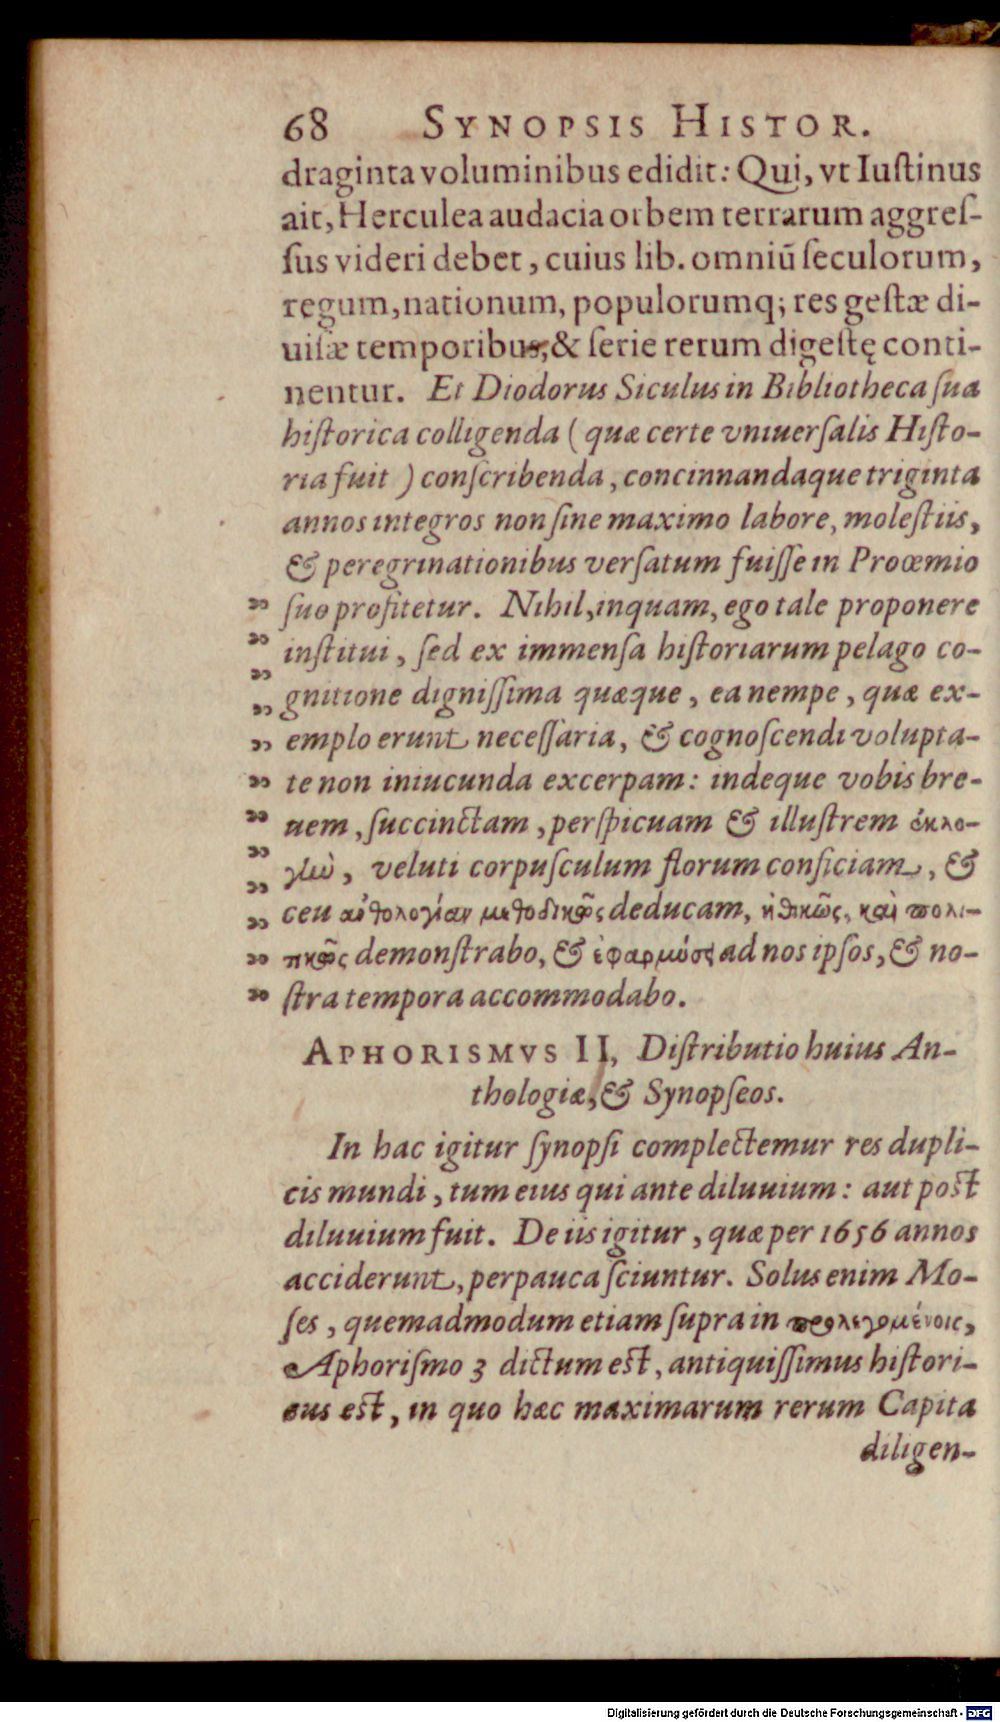 68 SYNOPSIS HISTOR.
draginta voluminibus edidit: Qui, vt Iuſtinus
ait, Herculea audacia orbem terrarum aggreſ-
ſus videri debet, cuius lib. omniū ſeculorum,
regum, nationum, populorumq; res geſtæ di-
uiſæ temporibus, & ſerie rerum digeſtę conti-
nentur. Et Diodorus Siculus in Bibliotheca ſua
hiſtorica colligenda (quæ certe vniuerſalis Hiſto-
ria fuit) conſcribenda, concinnandaque triginta
annos integros non ſine maximo labore, moleſtiis,
& peregrinationibus verſatum fuiſſe in Proœmio
„ ſuo profitetur. Nihil, inquam, ego tale proponere
„ inſtitui, ſed ex immenſa hiſtoriarum pelago co-
„ gnitione digniſſima quæque, ea nempe, quæ ex-
„ emplo erunt neceſſaria, & cognoſcendi volupta-
„ te non iniucunda excerpam: indeque vobis bre-
„ uem, ſuccinctam, perſpicuam & illuſtrem ἐκλο-
„ γὴν, veluti corpuſculum florum conficiam, &
„ ceu ἀνθολογίαν μεθοδικῶς deducam, ἠθικῶς, καὶ πολι-
„ τικῶς demonſtrabo, & ἐφαρμόσει ad nos ipſos, & no-
„ ſtra tempora accommodabo.
APHORISMVS II, Diſtributio huius An-
thologiæ, & Synopſeos.
In hac igitur ſynopſi complectemur res dupli-
cis mundi, tum eius qui ante diluuium: aut poſt
diluuium fuit. De iis igitur, quæ per 1656 annos
acciderunt, perpauca ſciuntur. Solus enim Mo-
ſes, quemadmodum etiam ſupra in προλεγομένοις,
Aphoriſmo 3 dictum eſt, antiquiſſimus hiſtori-
cus eſt, in quo hæc maximarum rerum Capita
diligen-
Digitalisierung gefördert durch die Deutsche Forschungsgemeinschaft - DFG